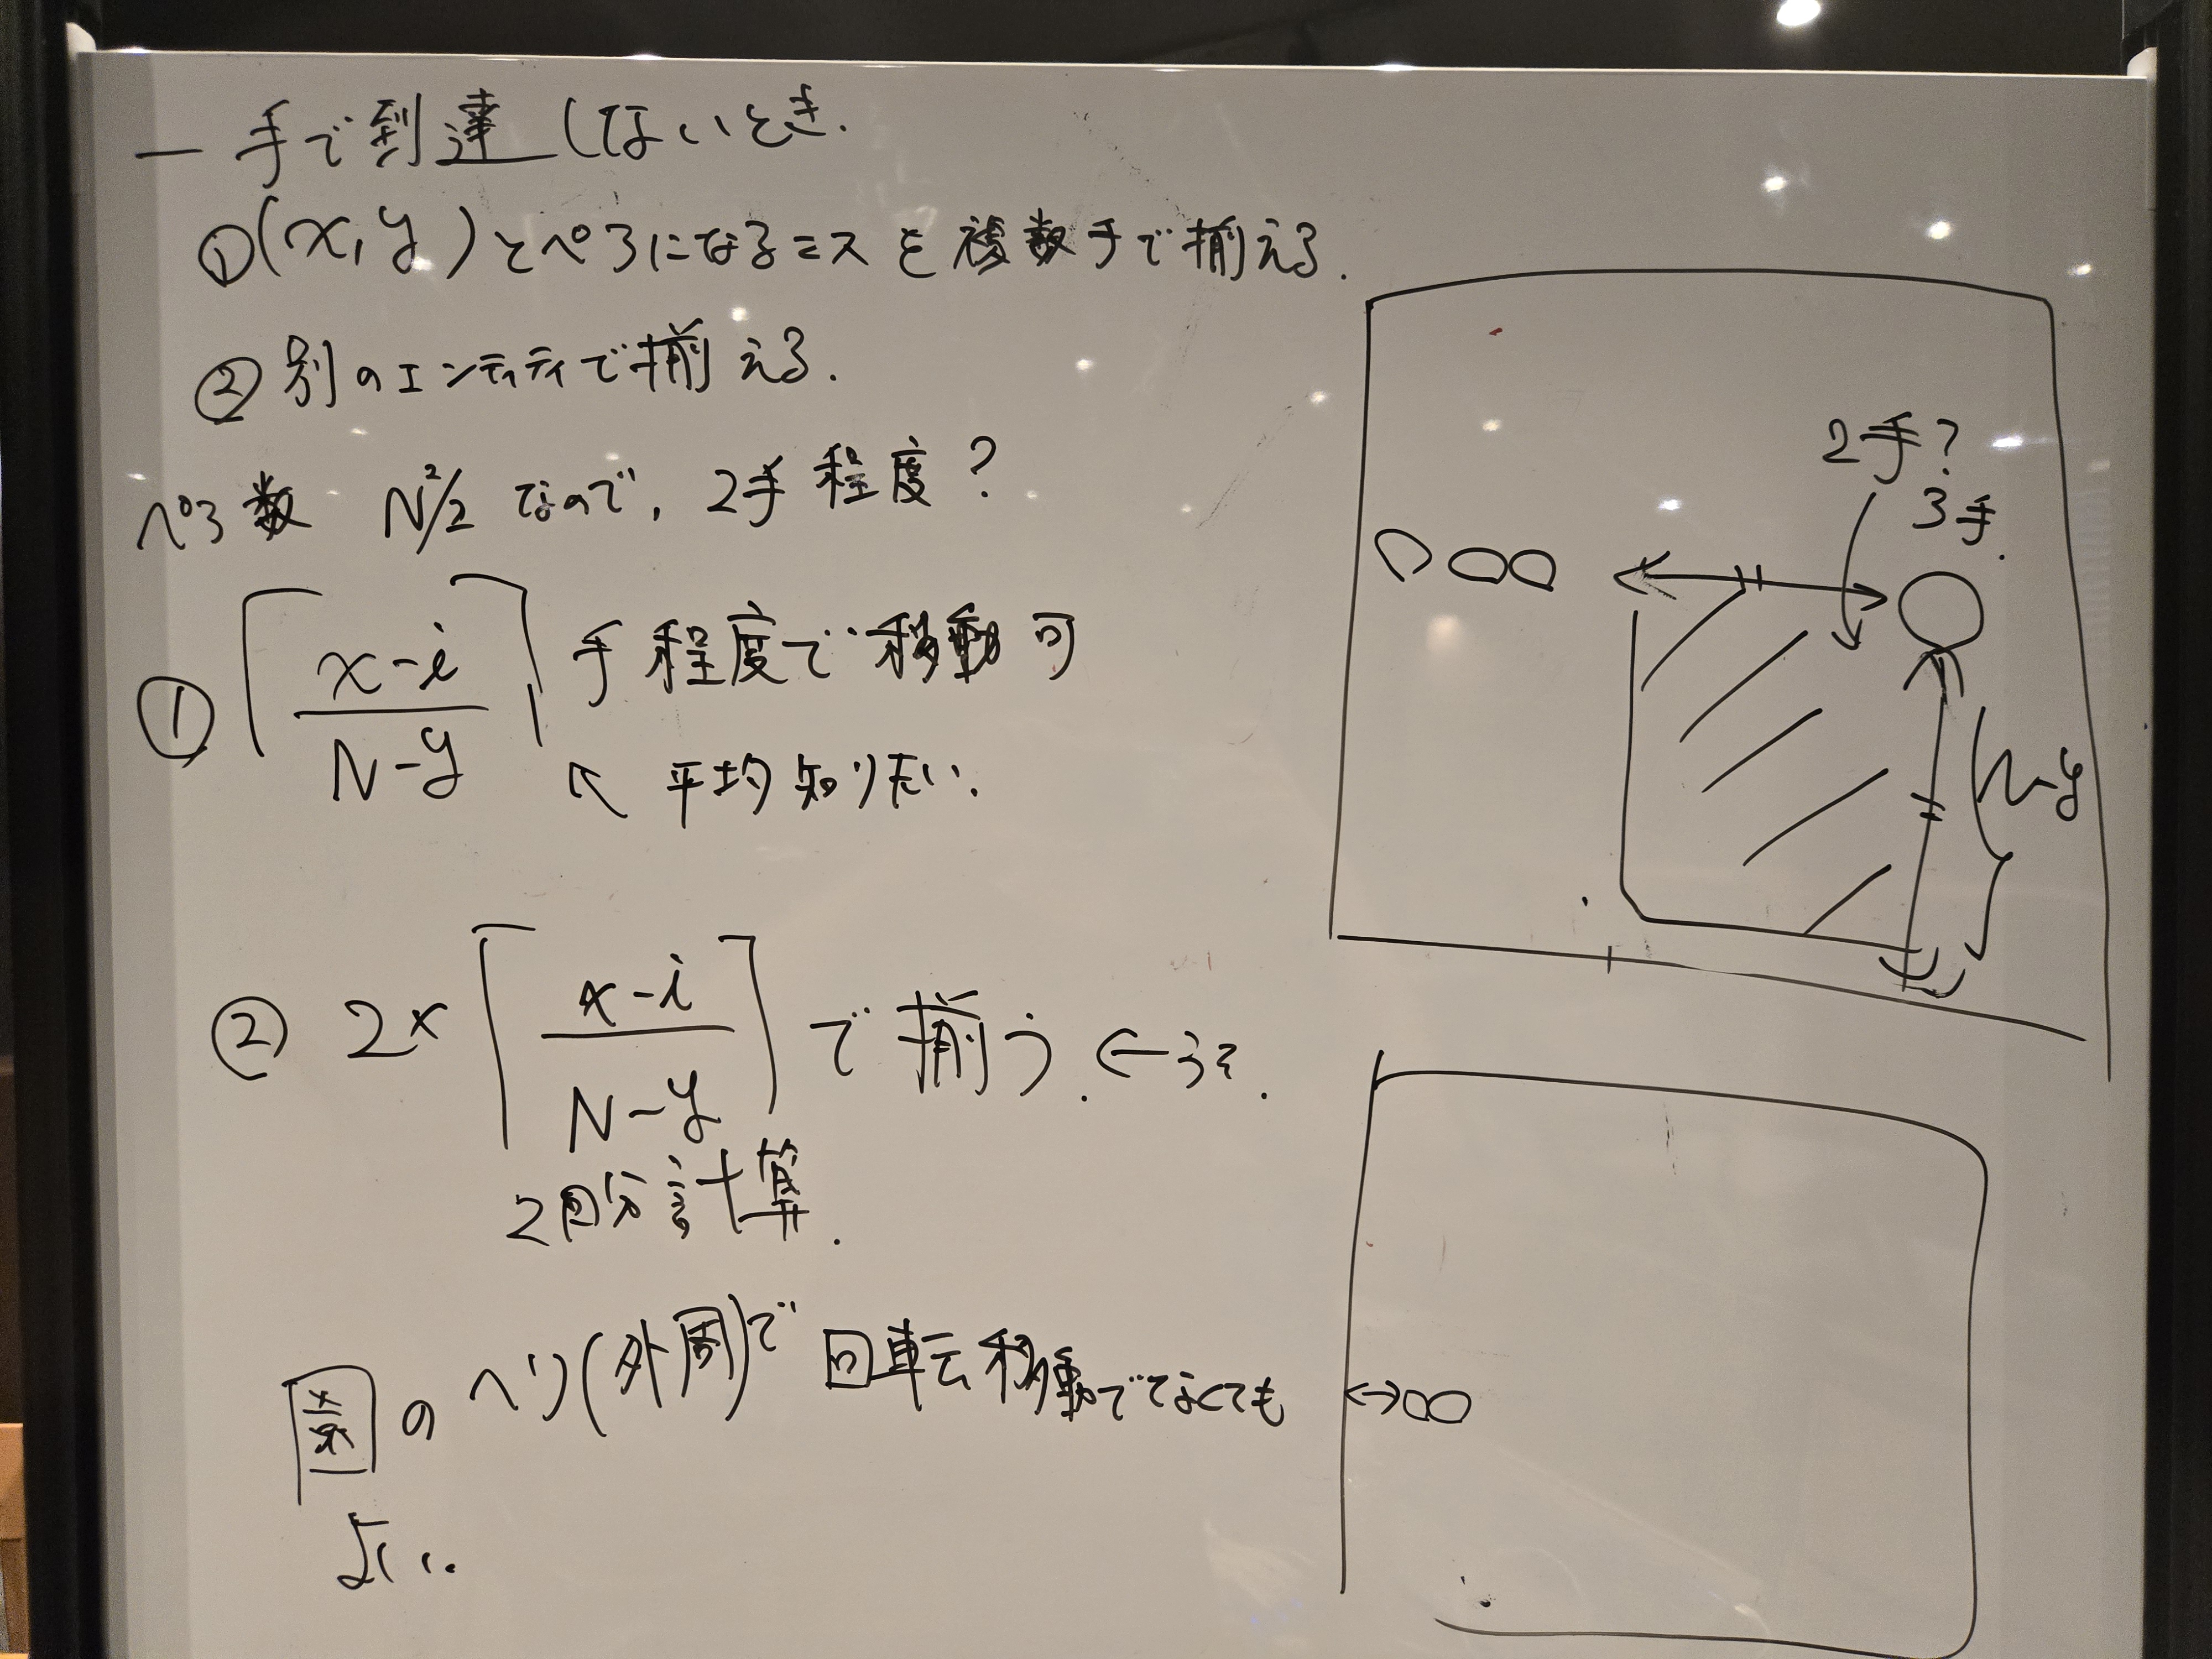 一手で到達しないとき.
①(x,y)とペアになるマスを複数手で揃える.
②別のエンティティで揃える.
ペア数 N²/2 なので, 2手程度?
① ⌈(x-i)/(N-y)⌉ 手程度で移動可
↖ 平均知りたい.
② 2×⌈(x-i)/(N-y)⌉ で揃う. ←
2回分計算.
案のヘリ(外周)で回転移動でなくても
よい.
2手?
3手.
N-y